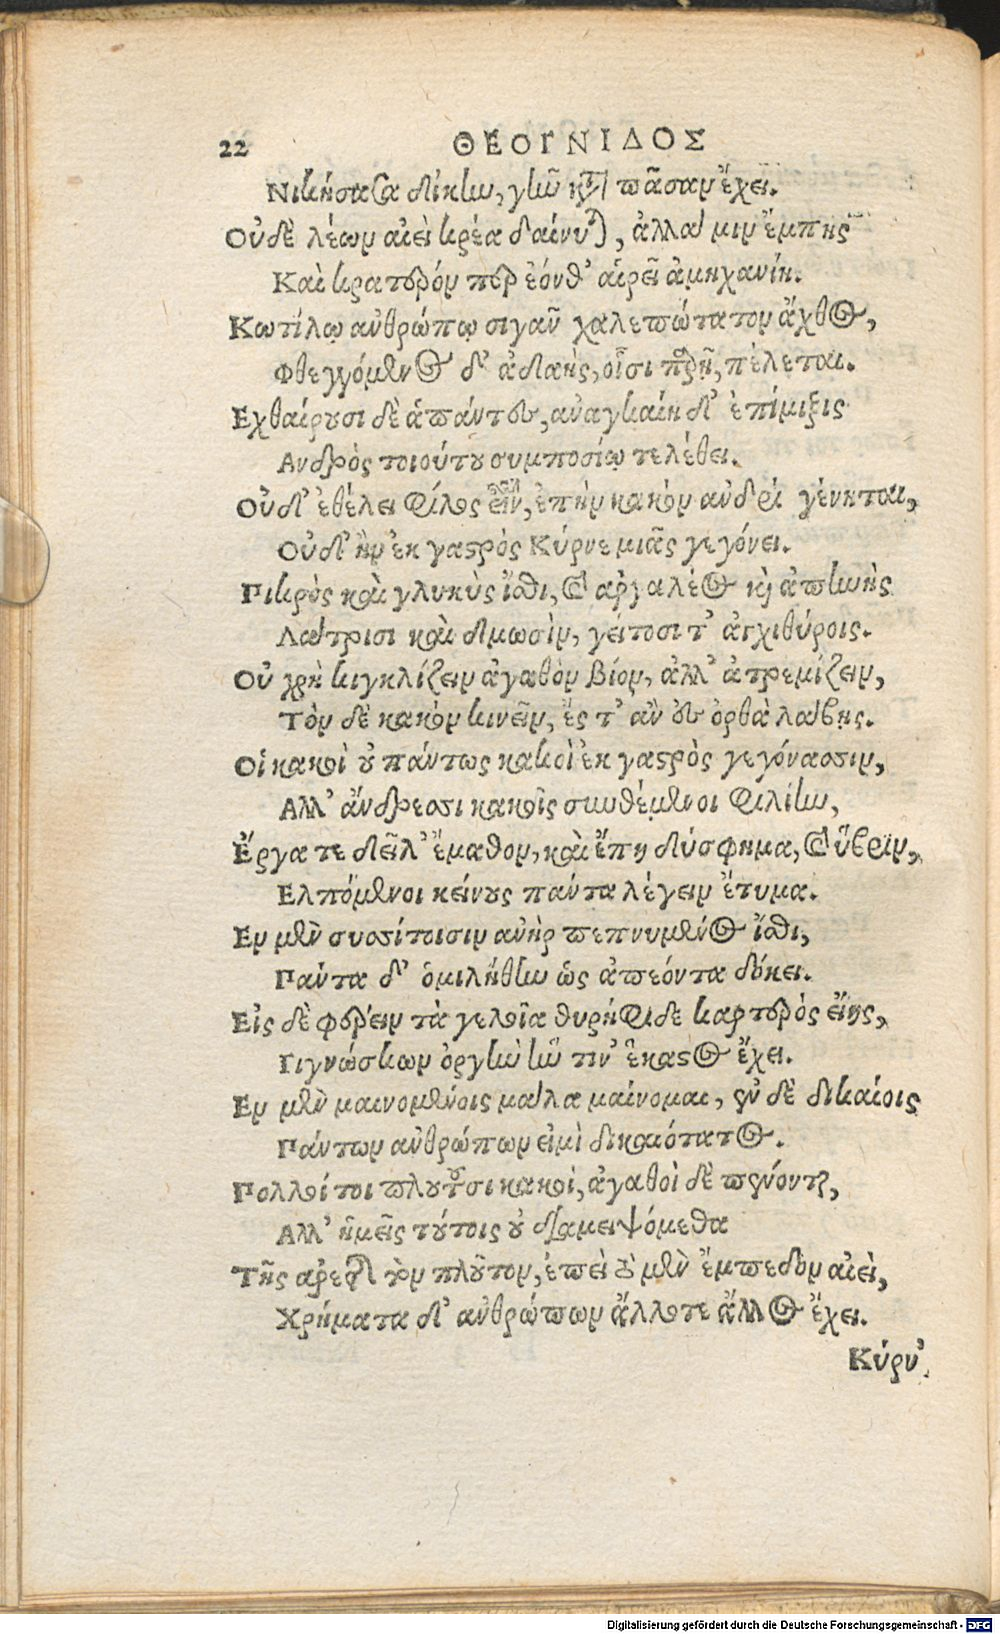 22 ΘΕΟΓΝΙΔΟΣ
Νικήσασα δίκην, γῆν κατὰ πᾶσαν ἔχει.
Οὐδὲ λέων αἰεὶ κρέα δαίνυται, ἀλλά μιν ἔμπης
Καὶ κρατερόν περ ἐόνθ' αἱρεῖ ἀμηχανίη.
Κωτίλῳ ἀνθρώπῳ σιγᾶν χαλεπώτατον ἄχθος,
Φθεγγόμενος δ' ἀδαὴς, οἷσι παρῇ, πέλεται.
Εχθαίρουσι δὲ ἅπαντες, ἀναγκαίη δ' ἐπίμιξις
Ανδρὸς τοιούτου συμποσίῳ τελέθει.
Οὐδ' ἐθέλει φίλος εἶναι, ἐπὴν κακὸν ἀνδρὶ γένηται,
Οὐδ' ἢν ἐκ γαστρὸς Κύρνε μιᾶς γεγόνει.
Πικρὸς καὶ γλυκὺς ἴσθι, καὶ ἀργαλέος καὶ ἀπηνὴς
Λάτρισι καὶ δμωσὶν, γείτοσι τ' ἀγχιθύροις.
Οὐ χρὴ κιγκλίζειν ἀγαθὸν βίον, ἀλλ' ἀτρεμίζειν,
Τὸν δὲ κακὸν κινεῖν, ἔς τ' ἂν ἐς ὀρθὰ λάβῃς.
Οἱ κακοὶ οὐ πάντως κακοὶ ἐκ γαστρὸς γεγόνασιν,
Αλλ' ἄνδρεσσι κακοῖς συνθέμενοι φιλίην,
Ἔργα τε δεῖλ' ἔμαθον, καὶ ἔπη δύσφημα, καὶ ὕβριν,
Ελπόμενοι κείνους πάντα λέγειν ἔτυμα.
Εν μὲν συσσίτοισιν ἀνὴρ πεπνυμένος ἴσθι,
Πάντα δ' ὁμιλήθην ὡς ἀπεόντα δόκει.
Εἰς δὲ φέρειν τὰ γελοῖα θυρήφιδε καρτερὸς εἴης,
Γιγνώσκων ὀργὴν ἣν τιν' ἕκαστος ἔχει.
Εν μὲν μαινομένοις μάλα μαίνομαι, ἐν δὲ δικαίοις
Πάντων ἀνθρώπων εἰμὶ δικαιότατος.
Πολλοί τοι πλουτοῦσι κακοὶ, ἀγαθοὶ δὲ πένονται,
Αλλ' ἡμεῖς τούτοις οὐ διαμειψόμεθα
Τῆς ἀρετῆς τὸν πλοῦτον, ἐπεὶ τὸ μὲν ἔμπεδον αἰεὶ,
Χρήματα δ' ἀνθρώπων ἄλλοτε ἄλλος ἔχει.
Κύρν'
Digitalisierung gefördert durch die Deutsche Forschungsgemeinschaft - DFG